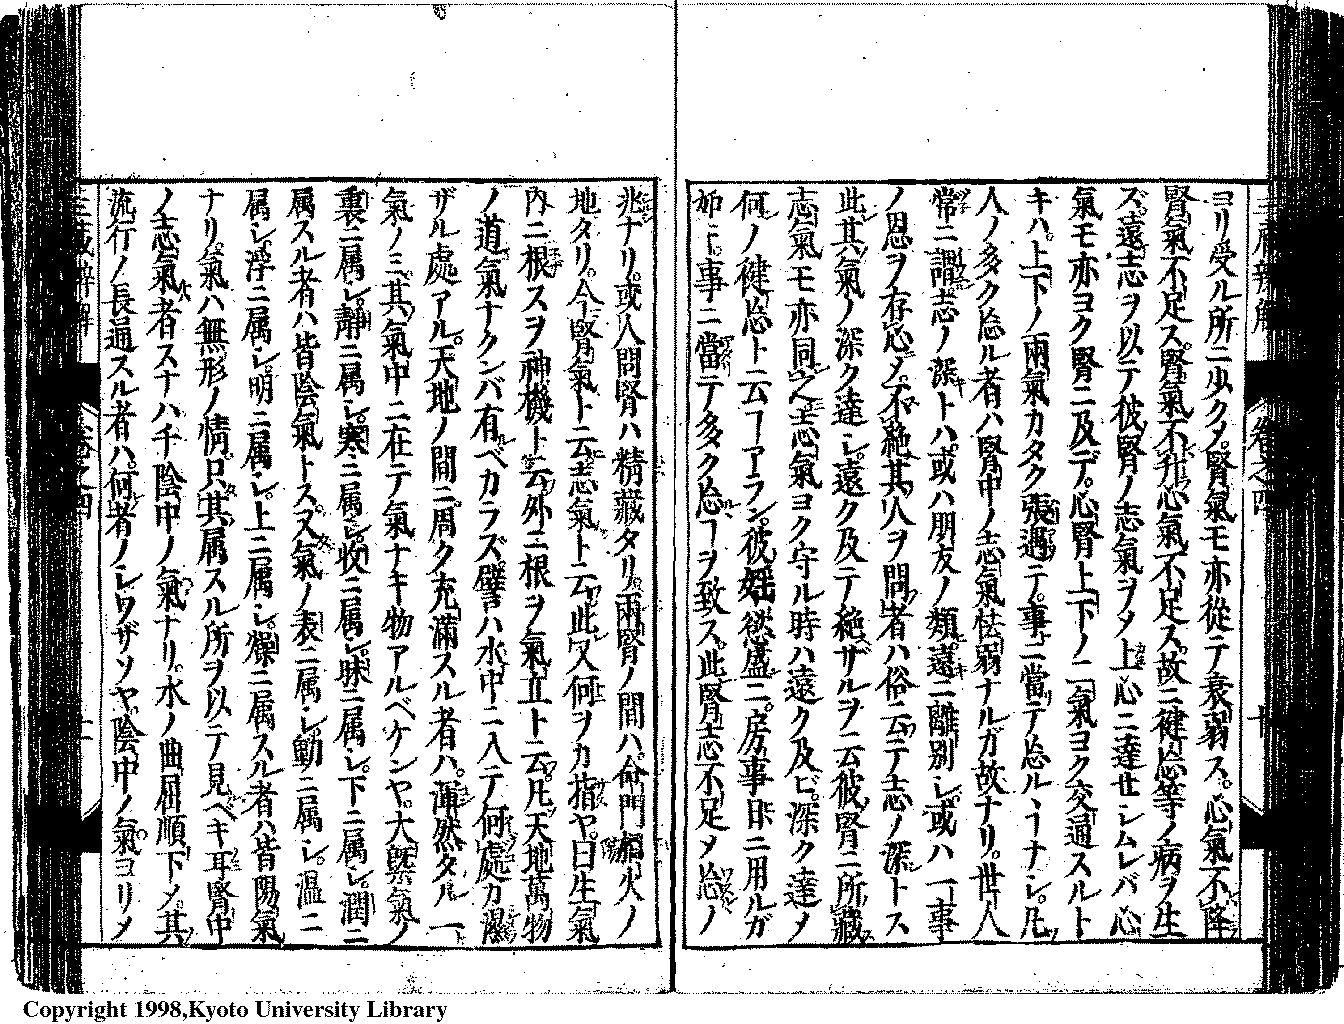 ヨリ受ル所ニ少クメ腎氣モ亦從テ衰弱ス心氣不降
腎氣不足ス腎氣不升心氣不足ス故ニ健忘等ノ病ヲ生
ズ遠志ヲ以テ彼腎ノ志氣ヲメ上心ニ達セシムレバ心
氣モ亦ヨク腎ニ及デ心腎上下ノ二氣ヨク交通スルト
キハ上下ノ兩氣カタク張遇テ事ニ當テ忘ルヽヿナシ凡
人ノ多ク忘ル者ハ腎中ノ志氣怯弱ナルガ故ナリ世人
常ニ謂志ノ深トハ或ハ朋友ノ類遠ニ離別シ或ハ一事
ノ恩ヲ存心メ不絶其人ヲ問者ハ俗云テ志ノ深トス
此其氣ノ深ク達シ遠ク及テ絶ザルヲ云彼腎ニ所藏
志氣モ亦同之志氣ヨク守ル時ハ遠ク及ビ深ク達メ
何ノ健忘ト云ヿアラン彼婬欲盛ニ房事日ニ用ルガ
如ニ事ニ當テ多ク忘ヿヲ致ス此腎志不足メ忘ノ
兆ナリ或人問腎ハ精藏タリ兩腎ノ間ハ命門相火ノ
地タリ今腎氣ト云志氣ト云此又何ヲカ指ヤ曰生氣
内ニ根スヲ神機ト云外ニ根ヲ氣立ト云凡天地萬物
ノ道氣ナクンバ有ベカラズ譬ハ水中ニ入テ何處カ濕
ザル處アル天地ノ間ニ周ク充滿スル者ハ渾然タル一
氣ノミ其氣中ニ在テ氣ナキ物アルベケンヤ大槩氣ノ
裏ニ属シ静ニ属シ寒ニ属シ收ニ属シ昧ニ属シ下ニ属シ潤ニ
属スル者ハ皆陰氣トス又氣ノ表ニ属シ動ニ属シ温ニ
属シ浮ニ属シ明ニ属シ上ニ属シ燥ニ属スル者ハ皆陽氣
ナリ氣ハ無形ノ情只其属スル所ヲ以テ見ベキ耳腎中
ノ志氣者スナハチ陰中ノ氣ナリ水ノ曲屈順下メ其
流行ノ長通スル者ハ何者ノシワザソヤ陰中ノ氣ヨリメ
Copyright 1998,Kyoto University Library